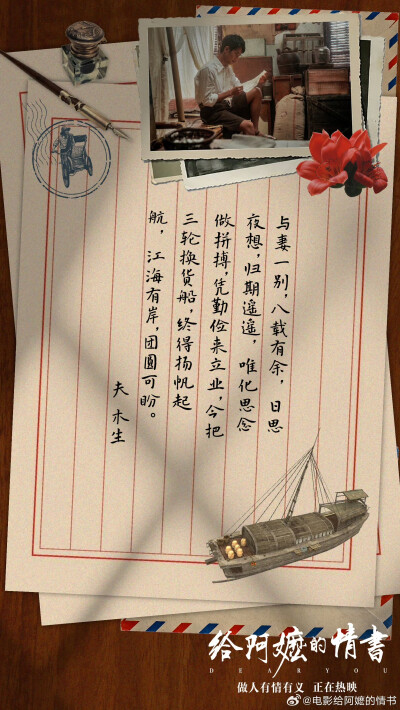 与妻一别，八载有余，日思
夜想，归期遥遥，唯化思念
做拼搏，凭勤俭来立业，今把
三轮换货船，终得扬帆起
航，江海有岸，团圆可盼。
夫木生
给阿嬷的情書
DEAR YOU
做人有情有义 正在热映
@电影给阿嬷的情书